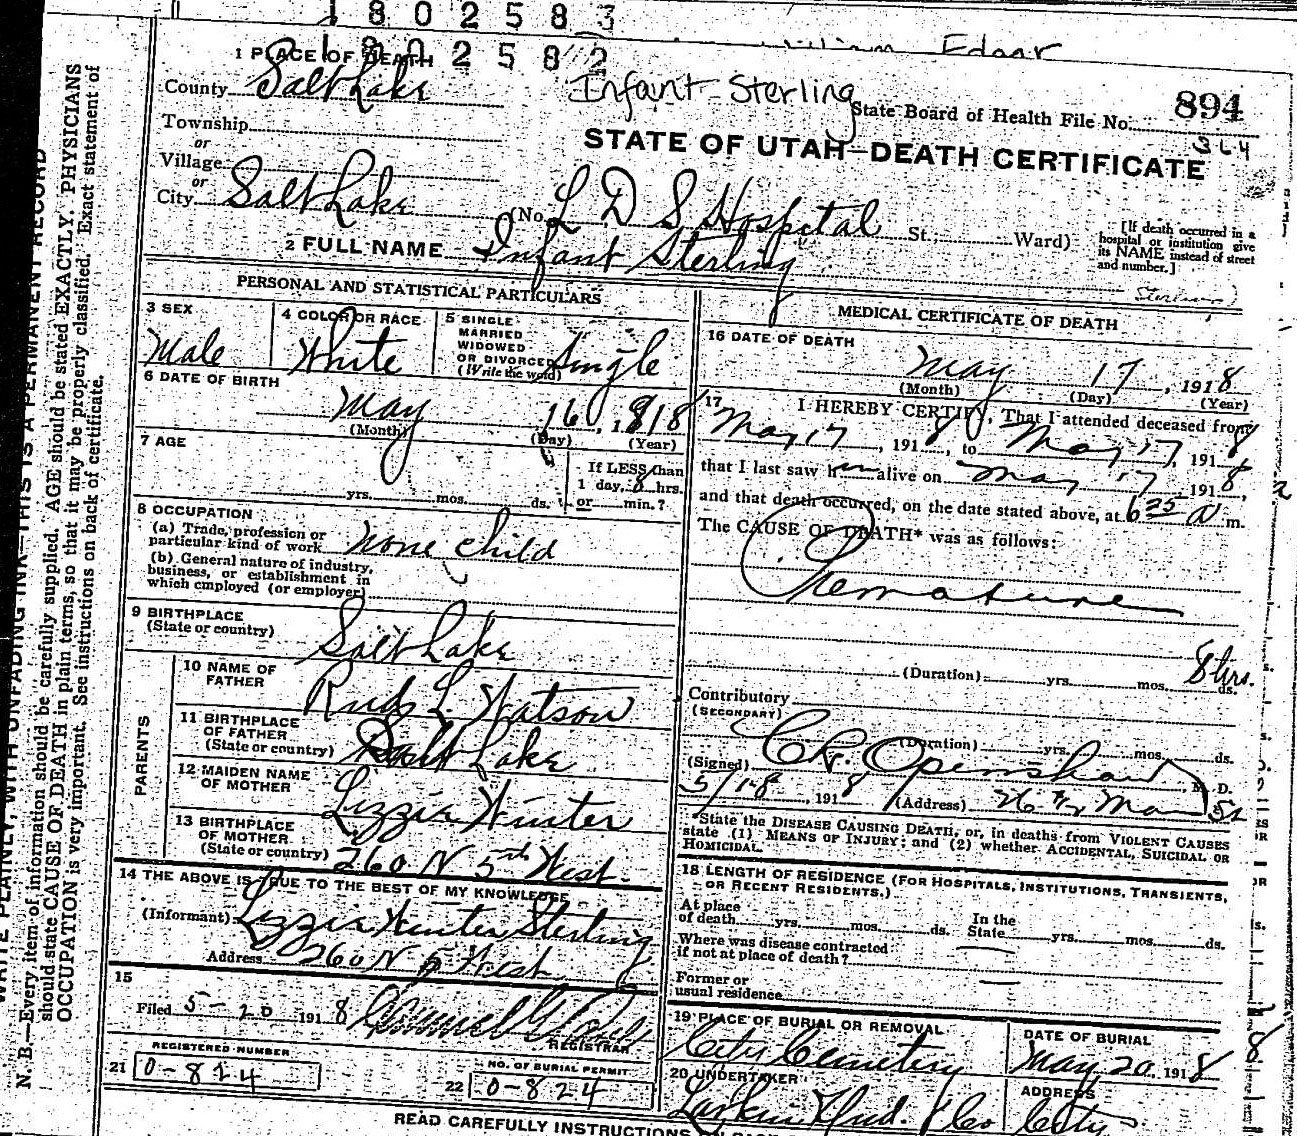 1 8 0 2 5 8 3
1 8 0 2 5 8 2
William Edgar
Infant Sterling
State Board of Health File No. 894
364
STATE OF UTAH—DEATH CERTIFICATE
1 PLACE OF DEATH
County Salt Lake
Township
or
Village
or
City Salt Lake (No. L D S Hospital St.; Ward)
[If death occurred in a hospital or institution give its NAME instead of street and number.]
2 FULL NAME Infant Sterling
Sterling
PERSONAL AND STATISTICAL PARTICULARS
3 SEX Male
4 COLOR OR RACE White
5 SINGLE MARRIED WIDOWED OR DIVORCED (Write the word) Single
6 DATE OF BIRTH
May 16, 1918
(Month) (Day) (Year)
7 AGE
yrs. mos. ds.
If LESS than 1 day, 8 hrs. or min.?
8 OCCUPATION
(a) Trade, profession or particular kind of work None Child
(b) General nature of industry, business, or establishment in which employed (or employer)
9 BIRTHPLACE
(State or country) Salt Lake
PARENTS
10 NAME OF FATHER L. Watson
11 BIRTHPLACE OF FATHER (State or country) Salt Lake
12 MAIDEN NAME OF MOTHER Lizzie Hunter
13 BIRTHPLACE OF MOTHER (State or country) 260 N 5th West.
14 THE ABOVE IS TRUE TO THE BEST OF MY KNOWLEDGE
(Informant) Lizzie Hunter Sterling
Address 260 N 5 West
15
Filed 5-20 1918
REGISTRAR
REGISTERED NUMBER
21 0-824
NO. OF BURIAL PERMIT
22 0-824
MEDICAL CERTIFICATE OF DEATH
16 DATE OF DEATH
May 17, 1918
(Month) (Day) (Year)
17 I HEREBY CERTIFY, That I attended deceased from
May 17, 1918, to May 17, 1918
that I last saw him alive on May 17 1918,
and that death occurred, on the date stated above, at 6 35 a m.
The CAUSE OF DEATH* was as follows:
Premature
(Duration) yrs. mos. ds. 8 hrs.
Contributory
(SECONDARY)
(Duration) yrs. mos. ds.
(Signed) C R Openshaw, M. D.
5/18, 1918 (Address) Main St
State the DISEASE CAUSING DEATH, or, in deaths from VIOLENT CAUSES
state (1) MEANS OF INJURY; and (2) whether ACCIDENTAL, SUICIDAL OR
HOMICIDAL.
18 LENGTH OF RESIDENCE (FOR HOSPITALS, INSTITUTIONS, TRANSIENTS,
OR RECENT RESIDENTS.)
At place of death yrs. mos. ds. In the State yrs. mos. ds.
Where was disease contracted if not at place of death?
Former or usual residence
19 PLACE OF BURIAL OR REMOVAL City Cemetery
DATE OF BURIAL May 20. 1918
20 UNDERTAKER Larkin Und. & Co
ADDRESS City
READ CAREFULLY INSTRUCTIONS ON BACK
WRITE PLAINLY, WITH UNFADING INK—THIS IS A PERMANENT RECORD
N. B.—Every item of information should be carefully supplied. AGE should be stated EXACTLY. PHYSICIANS
should state CAUSE OF DEATH in plain terms, so that it may be properly classified. Exact statement of
OCCUPATION is very important. See instructions on back of certificate.